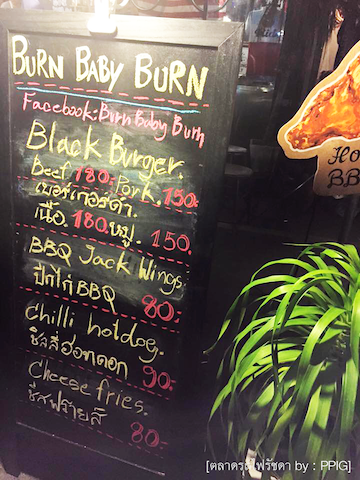 BURN BABY BURN
Facebook:Burn Baby Burn
Black Burger.
Beef 180.- Pork. 150.-
เบอร์เกอร์ดำ.
เนื้อ. 180. หมู. 150.
BBQ Jack Wings.
ปีกไก่ BBQ 80.-
Chilli hotdog.
ชิลลี่ฮอทดอก. 90.-
Cheese fries.
ชีสฟร้ายส์ 80.-
B.B.
[ตลาดรถไฟรัชดา by : PPIG]